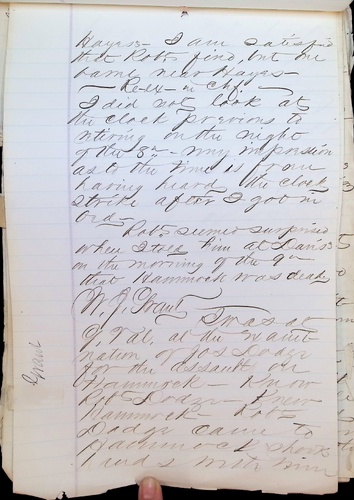 Hayes- I am satisfied
that Robt. find, but one
came near Hayes-
Re-ex- in Chf.
I did not look at
the clock previous to
retiring on the night
of the 3rd- my impression
as to the time is from
having heard the clock
strike after I got in
bed-
Robt seemed surprised
when I told him at Davis
on the morning of the 9th
that Hammock was dead
W. J. Grant
I was at
at the exami
nation of Jos Dodge
for the assault on
Hammock- Know
Robt Dodge- Knew
Hammock- Robt
Dodge came to
Hammock shook
hands with him
Grant